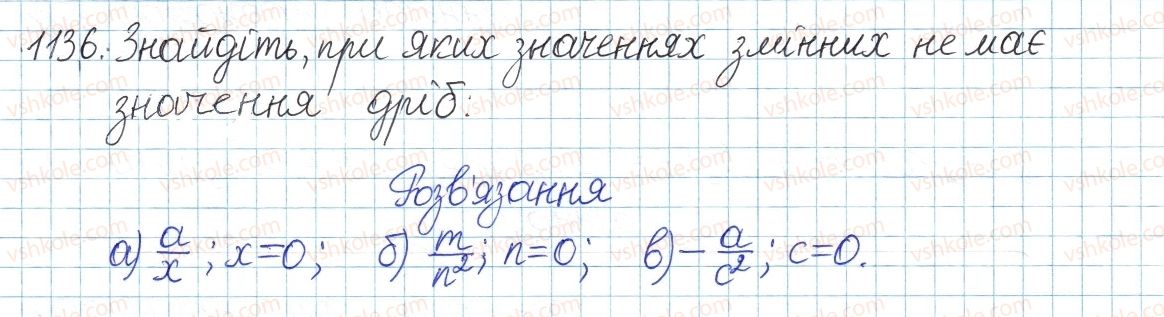 1136. Знайдіть, при яких значеннях змінних не має
значення дріб:
Розв'язання
а) a/x; x=0; б) m/n²; n=0; в) -a/c²; c=0.